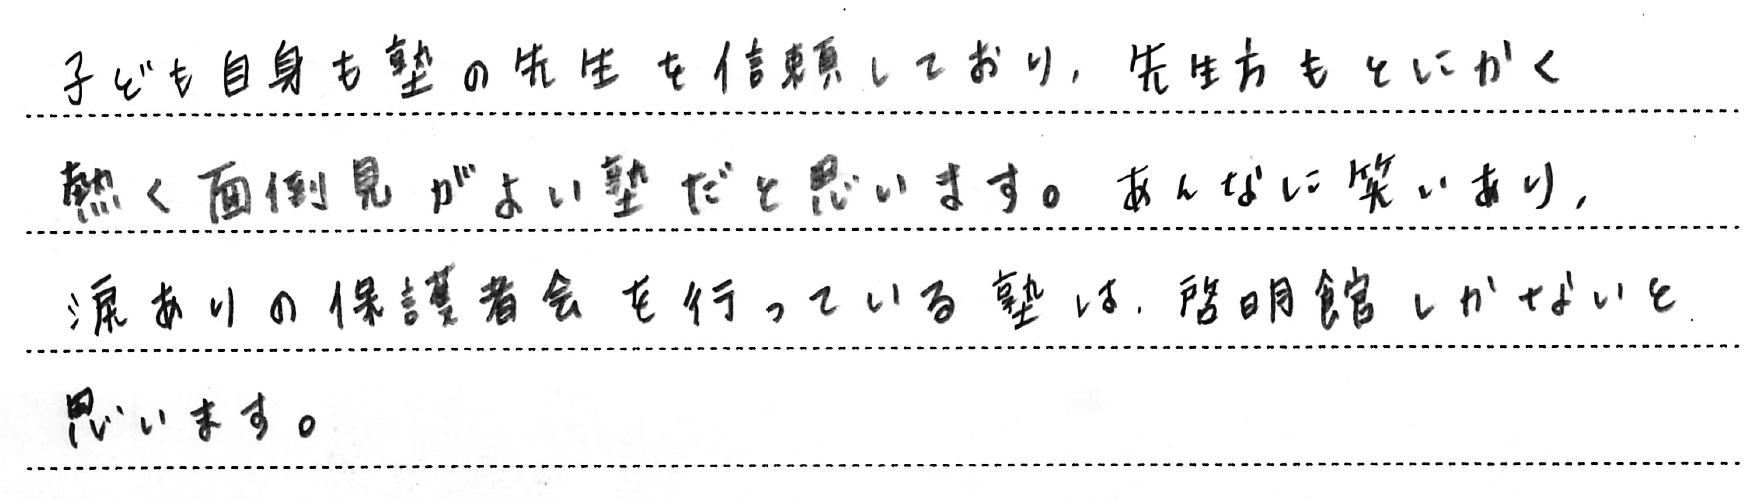 子ども自身も塾の先生を信頼しており、先生方もとにかく
熱く面倒見がよい塾だと思います。あんなに笑いあり、
涙ありの保護者会を行っている塾は、啓明館しかないと
思います。